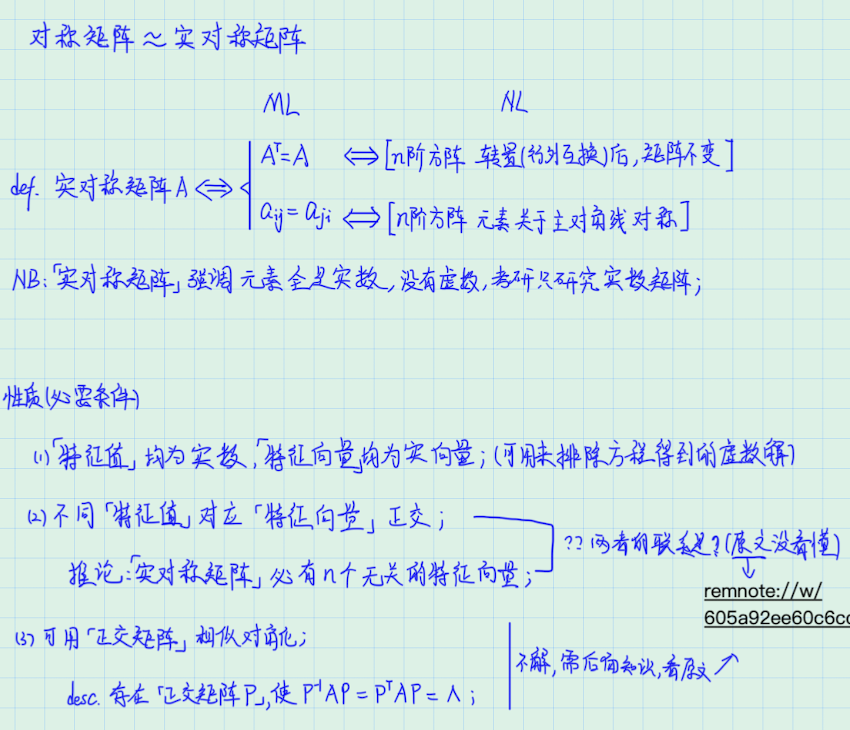 对称矩阵 ≈ 实对称矩阵
ML NL
def. 实对称矩阵 A ⟺ { Aᵀ=A ⟺ [n阶方阵 转置(行列互换)后,矩阵不变]
aij = aji ⟺ [n阶方阵 元素关于主对角线对称]
NB:「实对称矩阵」强调元素全是实数,没有虚数,考研只研究实数矩阵;
性质(必要条件)
(1)「特征值」均为实数,「特征向量」均为实向量;(可用来排除方程得到的虚数解)
(2) 不同「特征值」对应「特征向量」正交;
?? 两者的联系是?(原文没看懂)
推论:「实对称矩阵」必有n个无关的特征向量;
remnote://w/
605a92ee60c6cc
(3) 可用「正交矩阵」相似对角化;
不解,需后面知识,看原文↗
desc. 存在「正交矩阵P」,使 P⁻¹AP = PᵀAP = Λ;